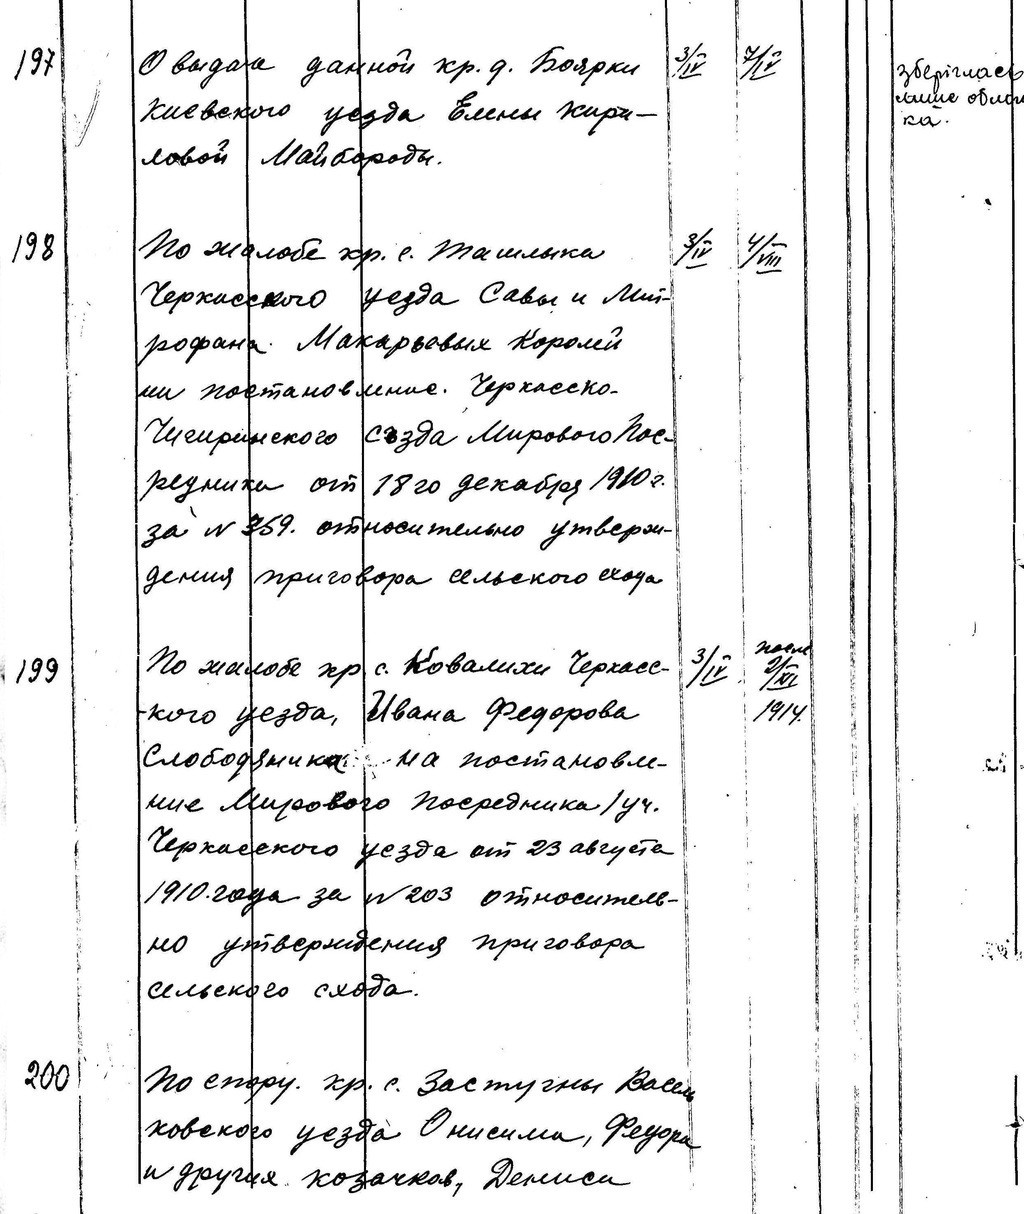 197 О выдаче данной кр. д. Боярки 3/IV 7/IV зберіглась
Киевского уезда Елены Кири- лише обкладин-
ловой Майбороды. ка.
198 По жалобе кр. с. Ташлыка 3/IV 4/VIII
Черкасского уезда Савы и Мит-
рофана Макарьевых Королей
на постановление. Черкасско-
Чигиринского съезда Мирового Пос-
редника от 18го декабря 1910 г.
за N 359. относительно утверж-
дения приговора сельского схода
199 По жалобе кр. с. Ковалихи Черкасс- 3/IV после
-кого уезда, Ивана Федорова 2/XII
Слободяника на постановле- 1914.
ние Мирового Посредника 1 уч.
Черкасского уезда от 23 августа
1910 года за N 203 относитель-
но утверждения приговора
сельского схода.
200 По спору. кр. с. Застугны Василь
ковского уезда Онисима, Федора
и других козачков, Дениса